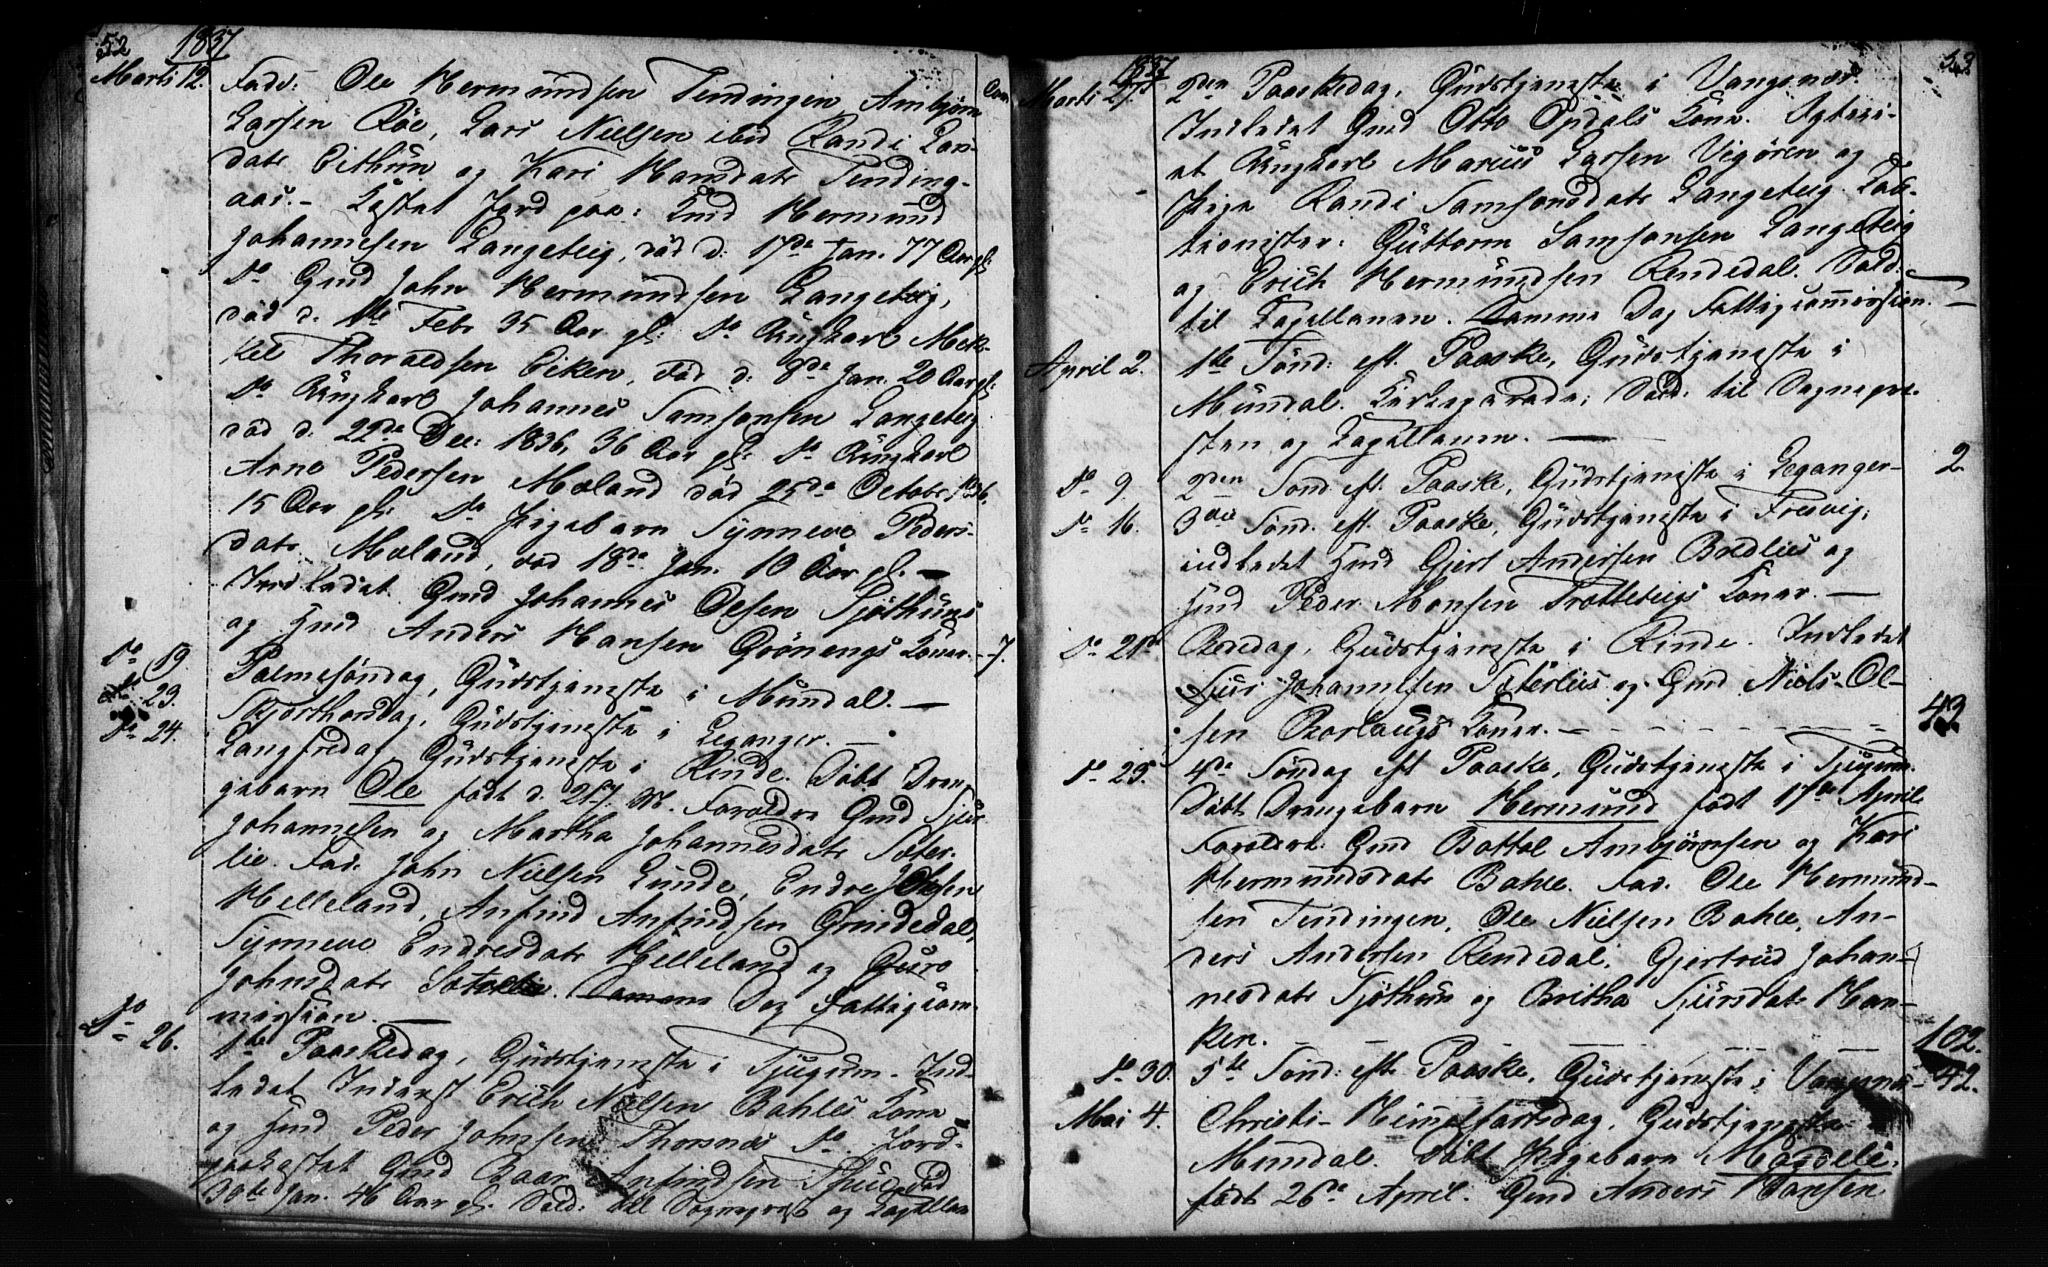 52 1837
Marti 12. Fadd: Ole Hermundsen Tendingen, Ambjørn Com
Larsen Röe, Lars Nielsen ibid Randi Lars-
datr Eithun og Kari Hansdatr Tending-
aas. – Kastet Jord paa: Gmd Hermund
Johannesen Langeteig, död d: 17de Jan. 77 Aar gl:
Do Gmd John Hermundsen Langeteig,
död d. 1te Febr 35 Aar gl: Do Ungkarl Mik-
kel Thoraldsen Eiken, död d: 8de Jan. 20 Aar gl:
Do Ungkarl Johannes Samsonsen Langeteig
död d: 22de Dec: 1836, 36 Aar gl: Do Ungkarl
Arne Pedersen Moland död 25de October, 1836,
15 Aar gl: Do Pigebarn Synneve Peders-
datr Moland, död 18de Jan. 10 Aar gl. —
Indledet Gmd Johannes Olsen Sjøthuns
og Hmd Anders Hansen Grönengs Koner. – 7.
Do 19. Palmesöndag, Gudstjeneste i Mundal. —
Do 23. Skjærthorsdag, Gudstjeneste i Leganger. —
Do 24. Langfredag Gudstjeneste i Rinde. Döbt Dren-
gebarn Ole födt d. 21 Forældre Gmd Sjur
Johannesen og Martha Johannesdatr Sæter-
lie. Fad: John Nielsen Lunde, Endre Olsen
Helleland, Anfind Anfindsen Grindedal,
Synneve Endresdatr Helleland og Guro
Johnsdatr Sæterlie. Samme Dag Fattigcom-
mission. —
Do 26. 1te Paaskedag, Gudstjeneste i Tjugum. Ind-
ledet Inderst Erich Nielsen Bahles Kone
og Hmd Peder Johnsen Thorsnæs Do. Jord-
paakastet Gmd Baar Anfindsen Thue död
30te Jan. 46 Aar gl. Vald: til Sognepræst og Capellan
1837 53
Marti 27. 2den Paaskedag, Gudstjeneste i Vangsnæs.
Indledet Gmd Otto Opdals Kone. Ægtevi-
et Ungkarl Marius Larsen Vigören og
Pige Randi Samsonsdatr Langeteig. Cau-
tionister: Guttorm Samsonsen Langeteig
og Erich Hermundsen Rendedal. Vald:
til Capellanen. Samme Dag Fattigcommission. —
April 2. 1te Sönd: eft. Paaske, Gudstjeneste i
Mundal. Kirkeparade; Vald: til Sognepræ-
sten og Capellanen. —
Do 9. 2den Sönd: eft. Paaske, Gudstjeneste i Leganger – 2
Do 16. 3die Sönd. eft. Paaske, Gudstjeneste i Fresvig;
indledet Hmd Gjert Andersen Bredlies og
Hmd Peder Monsen Trotteteigs Koner. —
Do 21de Bededag, Gudstjeneste i Rinde. Indledet
Sjur Johannesen Sæterlies og Gmd Niels Ol-
sen Borlaugs Koner. – – – – – – 43
Do 23. 4de Söndag eft Paaske, Gudstjeneste i Tjugum.
Döbt Drengebarn Hermund födt 17de April
Forældre: Gmd Bottol Ambjörnsen og Kari
Hermundsdatr Bahle. Fad. Ole Hermund-
sen Tendingen, Ole Nielsen Bahle, An-
ders Andersen Rendedal. Gjertrud Johan-
nesdatr Sjøthun og Britha Sjursdatr Han-
ken. — — — — — 102.
Do 30. 5te Sönd: eft. Paaske, Gudstjeneste i Vangsnæs – 42.
Mai 4. Christi-Himmelfartsdag, Gudstjeneste
Mundal. Döbt Pigebarn Mardele.
födt 26de April. Gmd Anders Hansen